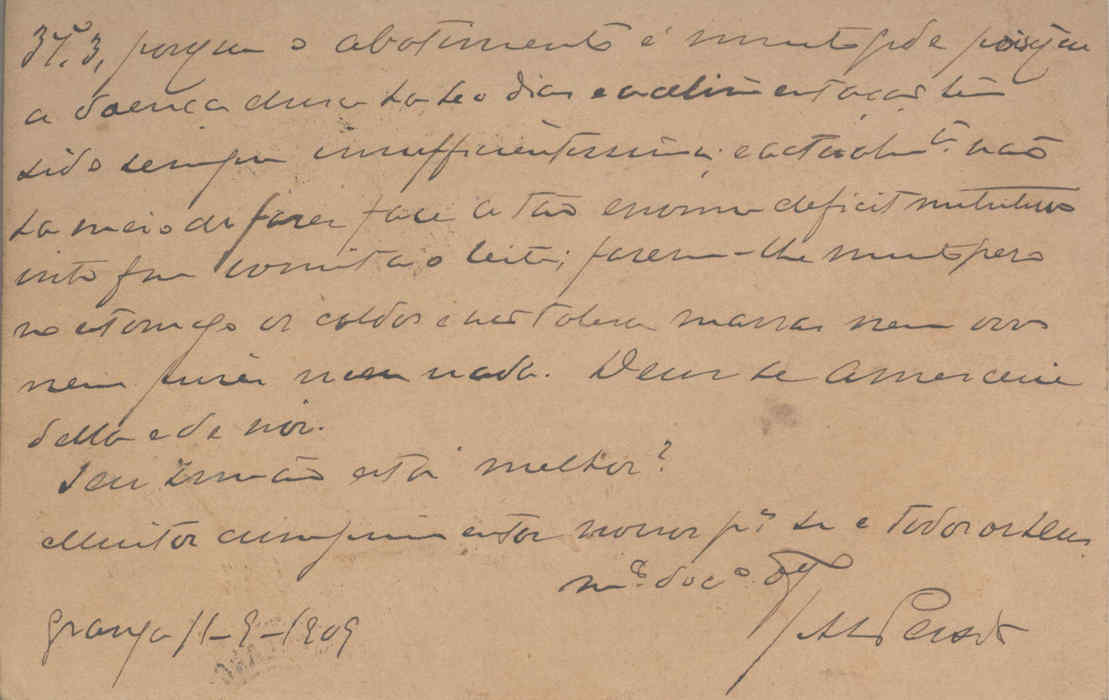 37.º3, porque o abatimento é muito gde porque
a doença dura ha 20 dias e a alimentação tem
sido sempre insufficientissima; e actualm.te não
ha meio de fazer face a tão enorme deficit nutritivo
visto que vomita o leite; fazem-lhe muito peso
no estomago os caldos e não tolera massas nem ovos
nem purés nem nada. Deus se amerceie
della e de nós.
Seu Irmão está melhor?
Muitos cumprimentos nossos p.ª si e todos os seus
Granja 11-9-1909